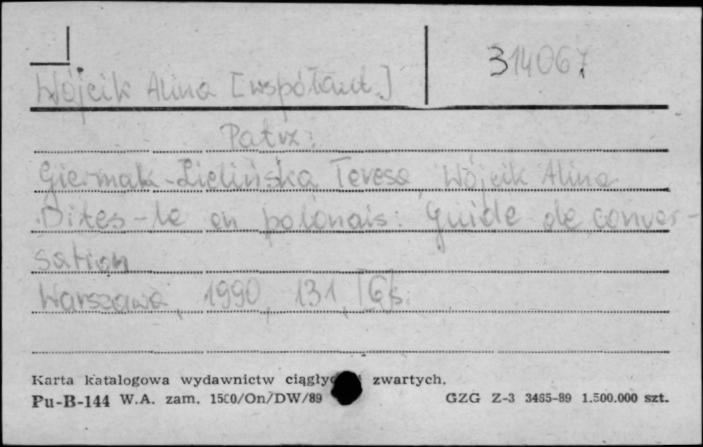 314067
Wójcik Alina [współaut.]
Patrz:
Giermak-Zielińska Teresa, Wójcik Alina
Dites-le en polonais: Guide de conver-
sation
Warszawa, 1990, 131, [6]s.
Karta katalogowa wydawnictw zwartych.
Pu-B-144 W.A. zam. 1500/On/DW/89 GZG Z-3 3465-89 1.500.000 szt.